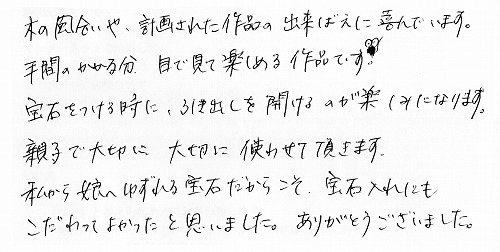 木の風合いや、計画された作品の出来ばえに喜んでいます。
手間のかかる分、目で見て楽しめる作品です。
宝石をつける時に、引き出しを開けるのが楽しみになります。
親子で大切に大切に使わせて頂きます。
私から娘へゆずれる宝石だからこそ、宝石入れにも
こだわってよかったと思いました。ありがとうございました。